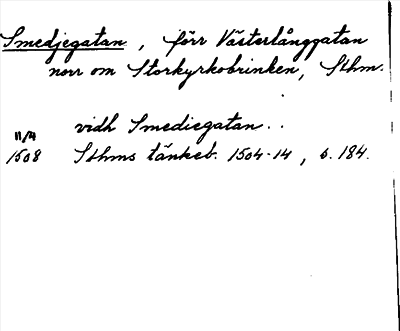 Smedjegatan, förr Västerlånggatan
norr om Storkyrkobrinken, Sthm.
vidh Smediegatan..
11/4
1508 Sthms tänkeb. 1504-14, s. 184.